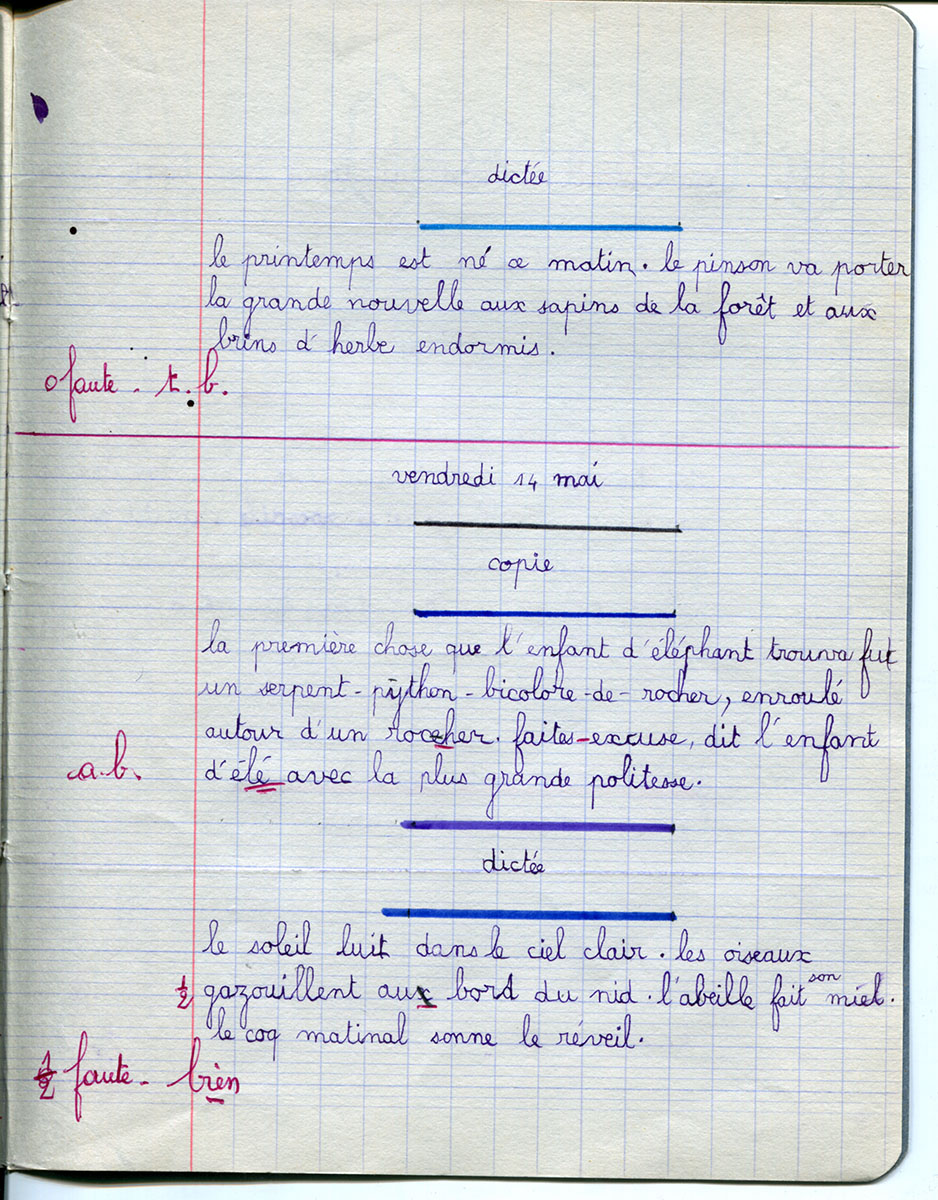 dictée
le printemps est né ce matin. le pinson va porter
la grande nouvelle aux sapins de la forêt et aux
brins d'herbe endormis.
0 faute - t.b.
vendredi 14 mai
copie
la première chose que l'enfant d'éléphant trouva fut
un serpent-python-bicolore-de-rocher, enroulé
autour d'un rocher. faites-excuse, dit l'enfant
a.b.
d'élé avec la plus grande politesse.
dictée
le soleil luit dans le ciel clair. les oiseaux
1/2 gazouillent aux bord du nid. l'abeille fait son miel.
le coq matinal sonne le réveil.
1/2 faute - bien